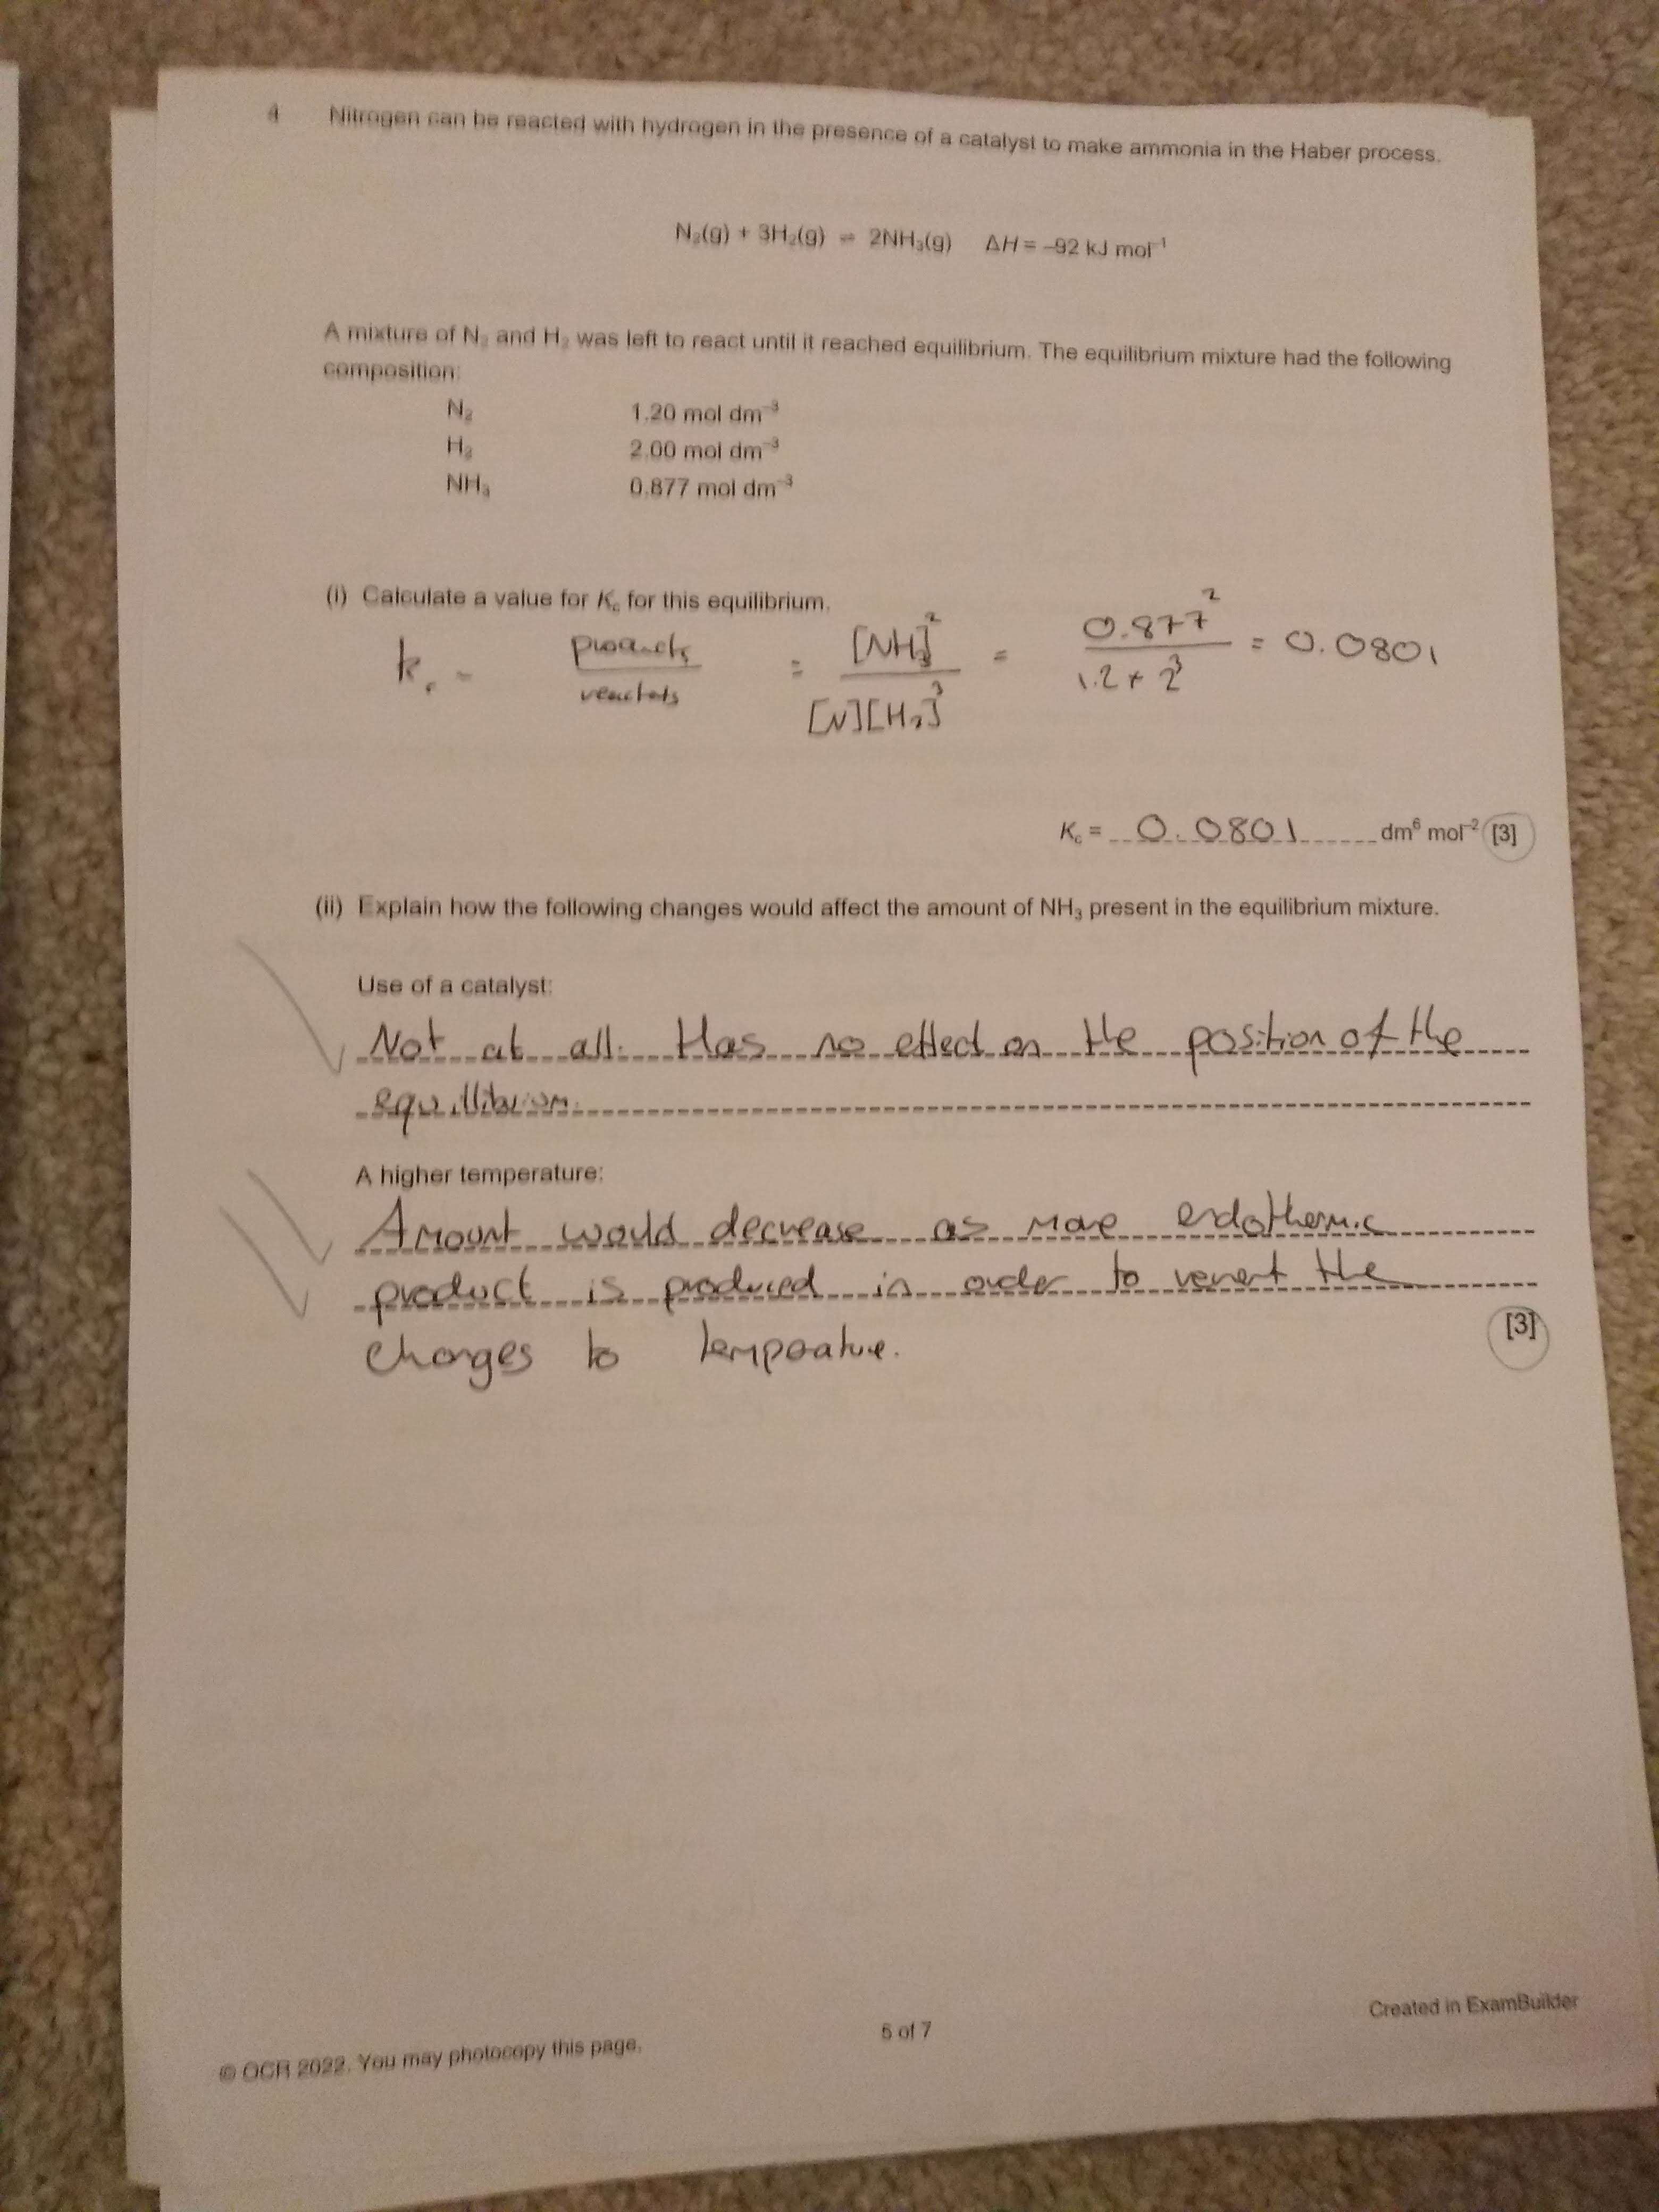 4 Nitrogen can be reacted with hydrogen in the presence of a catalyst to make ammonia in the Haber process.
N₂(g) + 3H₂(g) ⇌ 2NH₃(g) ΔH = –92 kJ mol⁻¹
A mixture of N₂ and H₂ was left to react until it reached equilibrium. The equilibrium mixture had the following
composition:
N₂ 1.20 mol dm⁻³
H₂ 2.00 mol dm⁻³
NH₃ 0.877 mol dm⁻³
(i) Calculate a value for K꜀ for this equilibrium.
k꜀ = products / reactants = [NH₃]² / [N][H₂]³ = 0.877² / 1.2 × 2³ = 0.0801
K꜀ = 0.0801 dm⁶ mol⁻² [3]
(ii) Explain how the following changes would affect the amount of NH₃ present in the equilibrium mixture.
Use of a catalyst:
Not at all. Has no effect on the position of the
equillibrium.
A higher temperature:
Amount would decrease as more endothermic
product is produced in order to revert the
changes to temperature.
[3]
Created in ExamBuilder
5 of 7
© OCR 2022. You may photocopy this page.